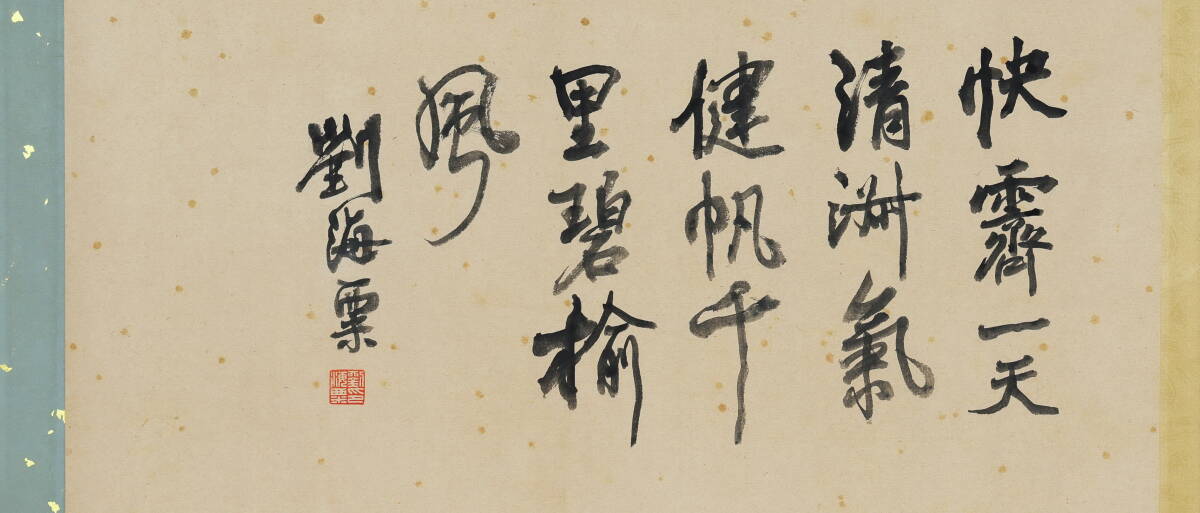 快霽一天
清淑氣
健帆千
里碧榆
風
劉海粟
劉印海粟